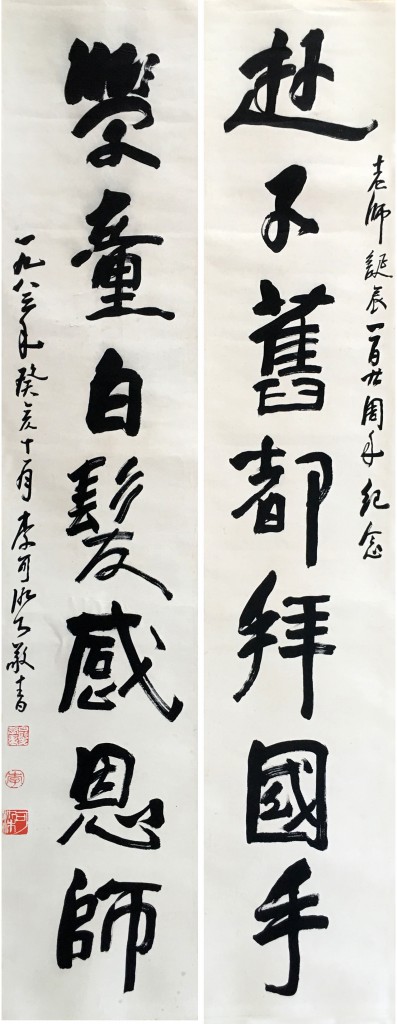 遊子舊都拜國手
老師誕辰一百廿周年紀念
學童白髮感恩師
一九八三年癸亥十月李可染敬書
李
可染